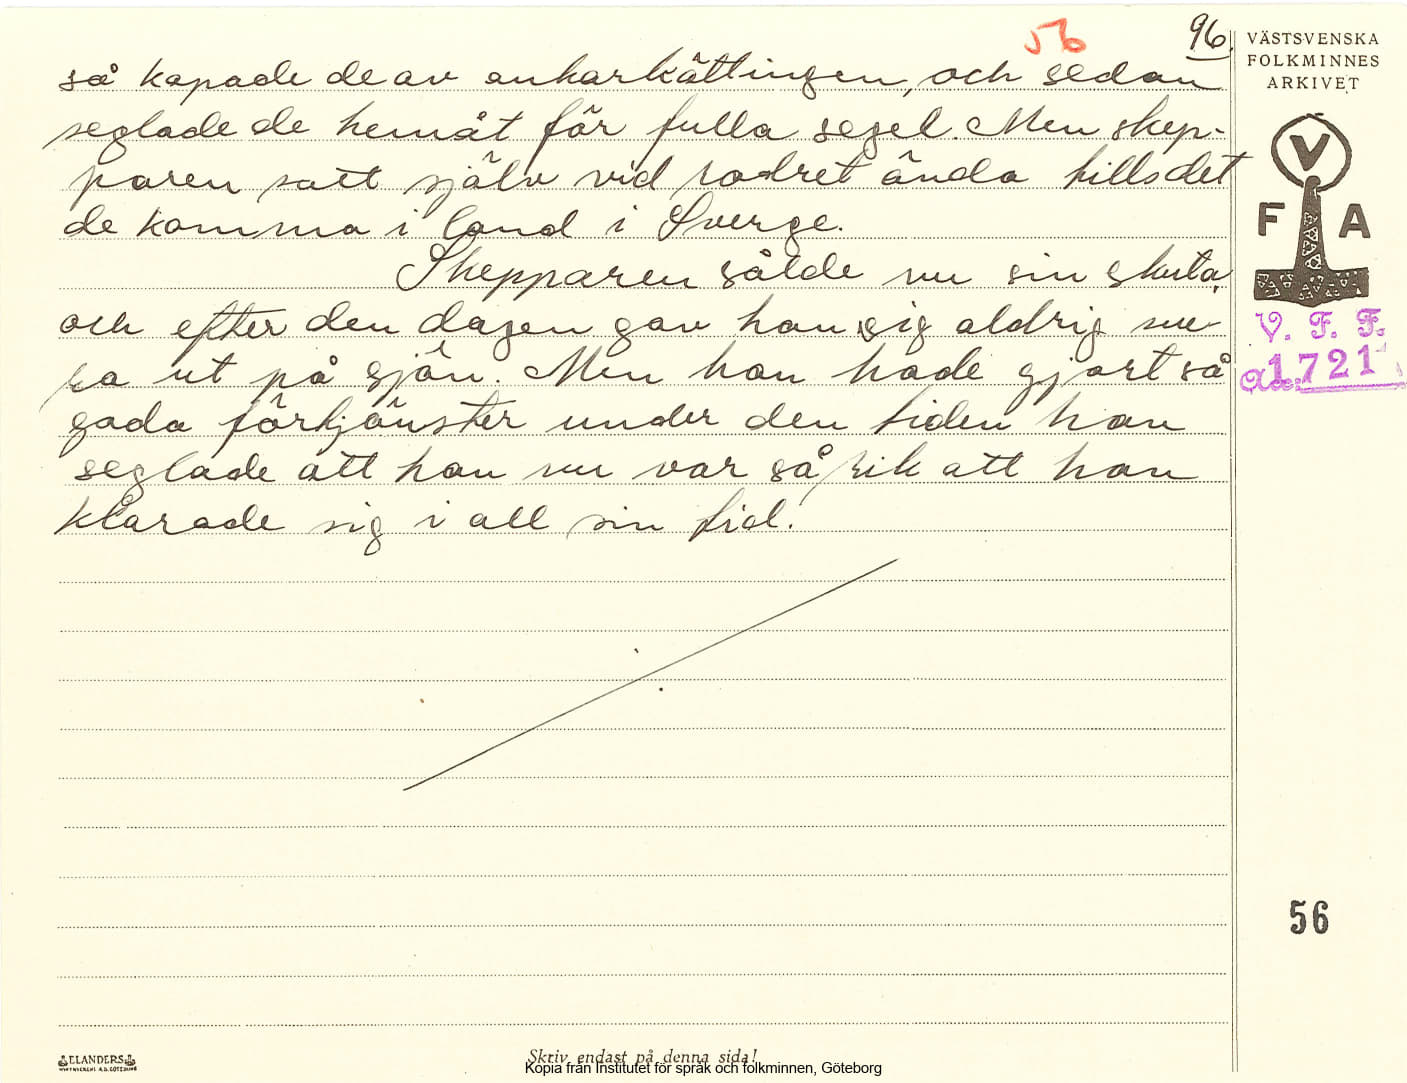 56
96.
VÄSTSVENSKA
FOLKMINNES
ARKIVET
så kapade de av ankarkättingen, och sedan
seglade de hemåt för fulla segel. Men skep-
paren satt själv vid rodret ända tills det
de komma i land i Sverge.
Skepparen sålde nu sin skuta,
och efter den dagen gav han sig aldrig me-
ra ut på sjön. Men han hade gjort så
goda förtjänster under den tiden han
seglade att han nu var så rik att han
klarade sig i all sin tid.
V
F A
V. F. F.
1721
56
ELANDERS
Skriv endast på denna sida!
Kopia från Institutet för språk och folkminnen, Göteborg